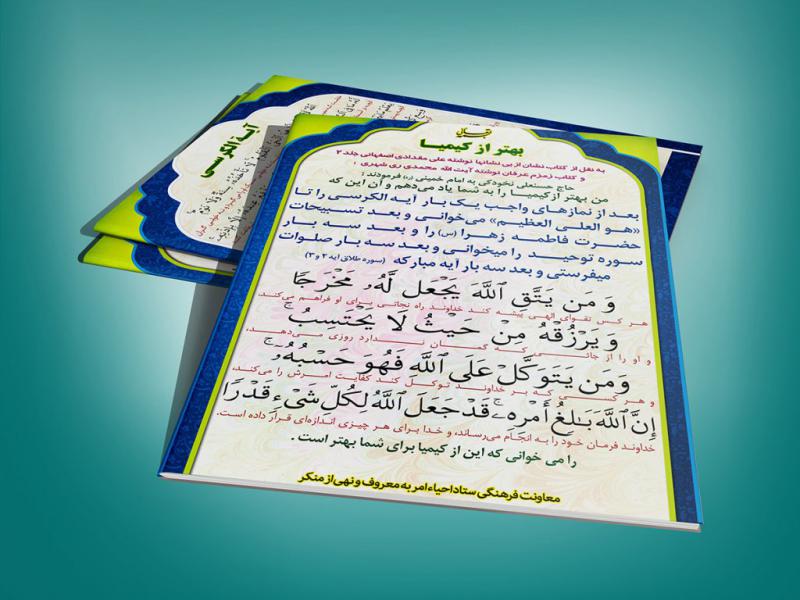 بهتر از کیمیا
به نقل از کتاب نشان از بی نشانها نوشته علی مقدادی اصفهانی جلد ۲
و کتاب زمزم عرفان نوشته آیت الله محمدی ری شهری ؛
حاج حسنعلی نخودکی به امام خمینی (ره) فرمودند :
من بهتر از کیمیا را به شما یاد می‌دهم و آن این که
بعد از نمازهای واجب یک بار آیه الکرسی را تا
«هو العلی العظیم» می‌خوانی و بعد تسبیحات
حضرت فاطمه زهرا (س) را و بعد سه بار
سوره توحید را میخوانی و بعد سه بار صلوات
میفرستی و بعد سه بار آیه مبارکه (سوره طلاق آیه ۲ و ۳)
وَ مَن يَتَّقِ ٱللَّهَ يَجْعَل لَّهُۥ مَخْرَجًا
هر کس تقوای الهی پیشه کند خداوند راه نجاتی برای او فراهم می‌کند.
وَ يَرْزُقْهُ مِنْ حَيْثُ لَا يَحْتَسِبُ ۚ
و او را از جائی که گمان ندارد روزی می‌دهد،
وَمَن يَتَوَكَّلْ عَلَى ٱللَّهِ فَهُوَ حَسْبُهُۥٓ ۚ
و هر کسی که بر خداوند توکل کند کفایت امرش را می‌کند،
إِنَّ ٱللَّهَ بَـٰلِغُ أَمْرِهِۦ ۚ قَدْ جَعَلَ ٱللَّهُ لِكُلِّ شَىْءٍ قَدْرًا
خداوند فرمان خود را به انجام می‌رساند، و خدا برای هر چیزی اندازه‌ای قرار داده است.
را می خوانی که این از کیمیا برای شما بهتر است .
معاونت فرهنگی ستاد احیاء امر به معروف و نهی از منکر
آیة الکرسی